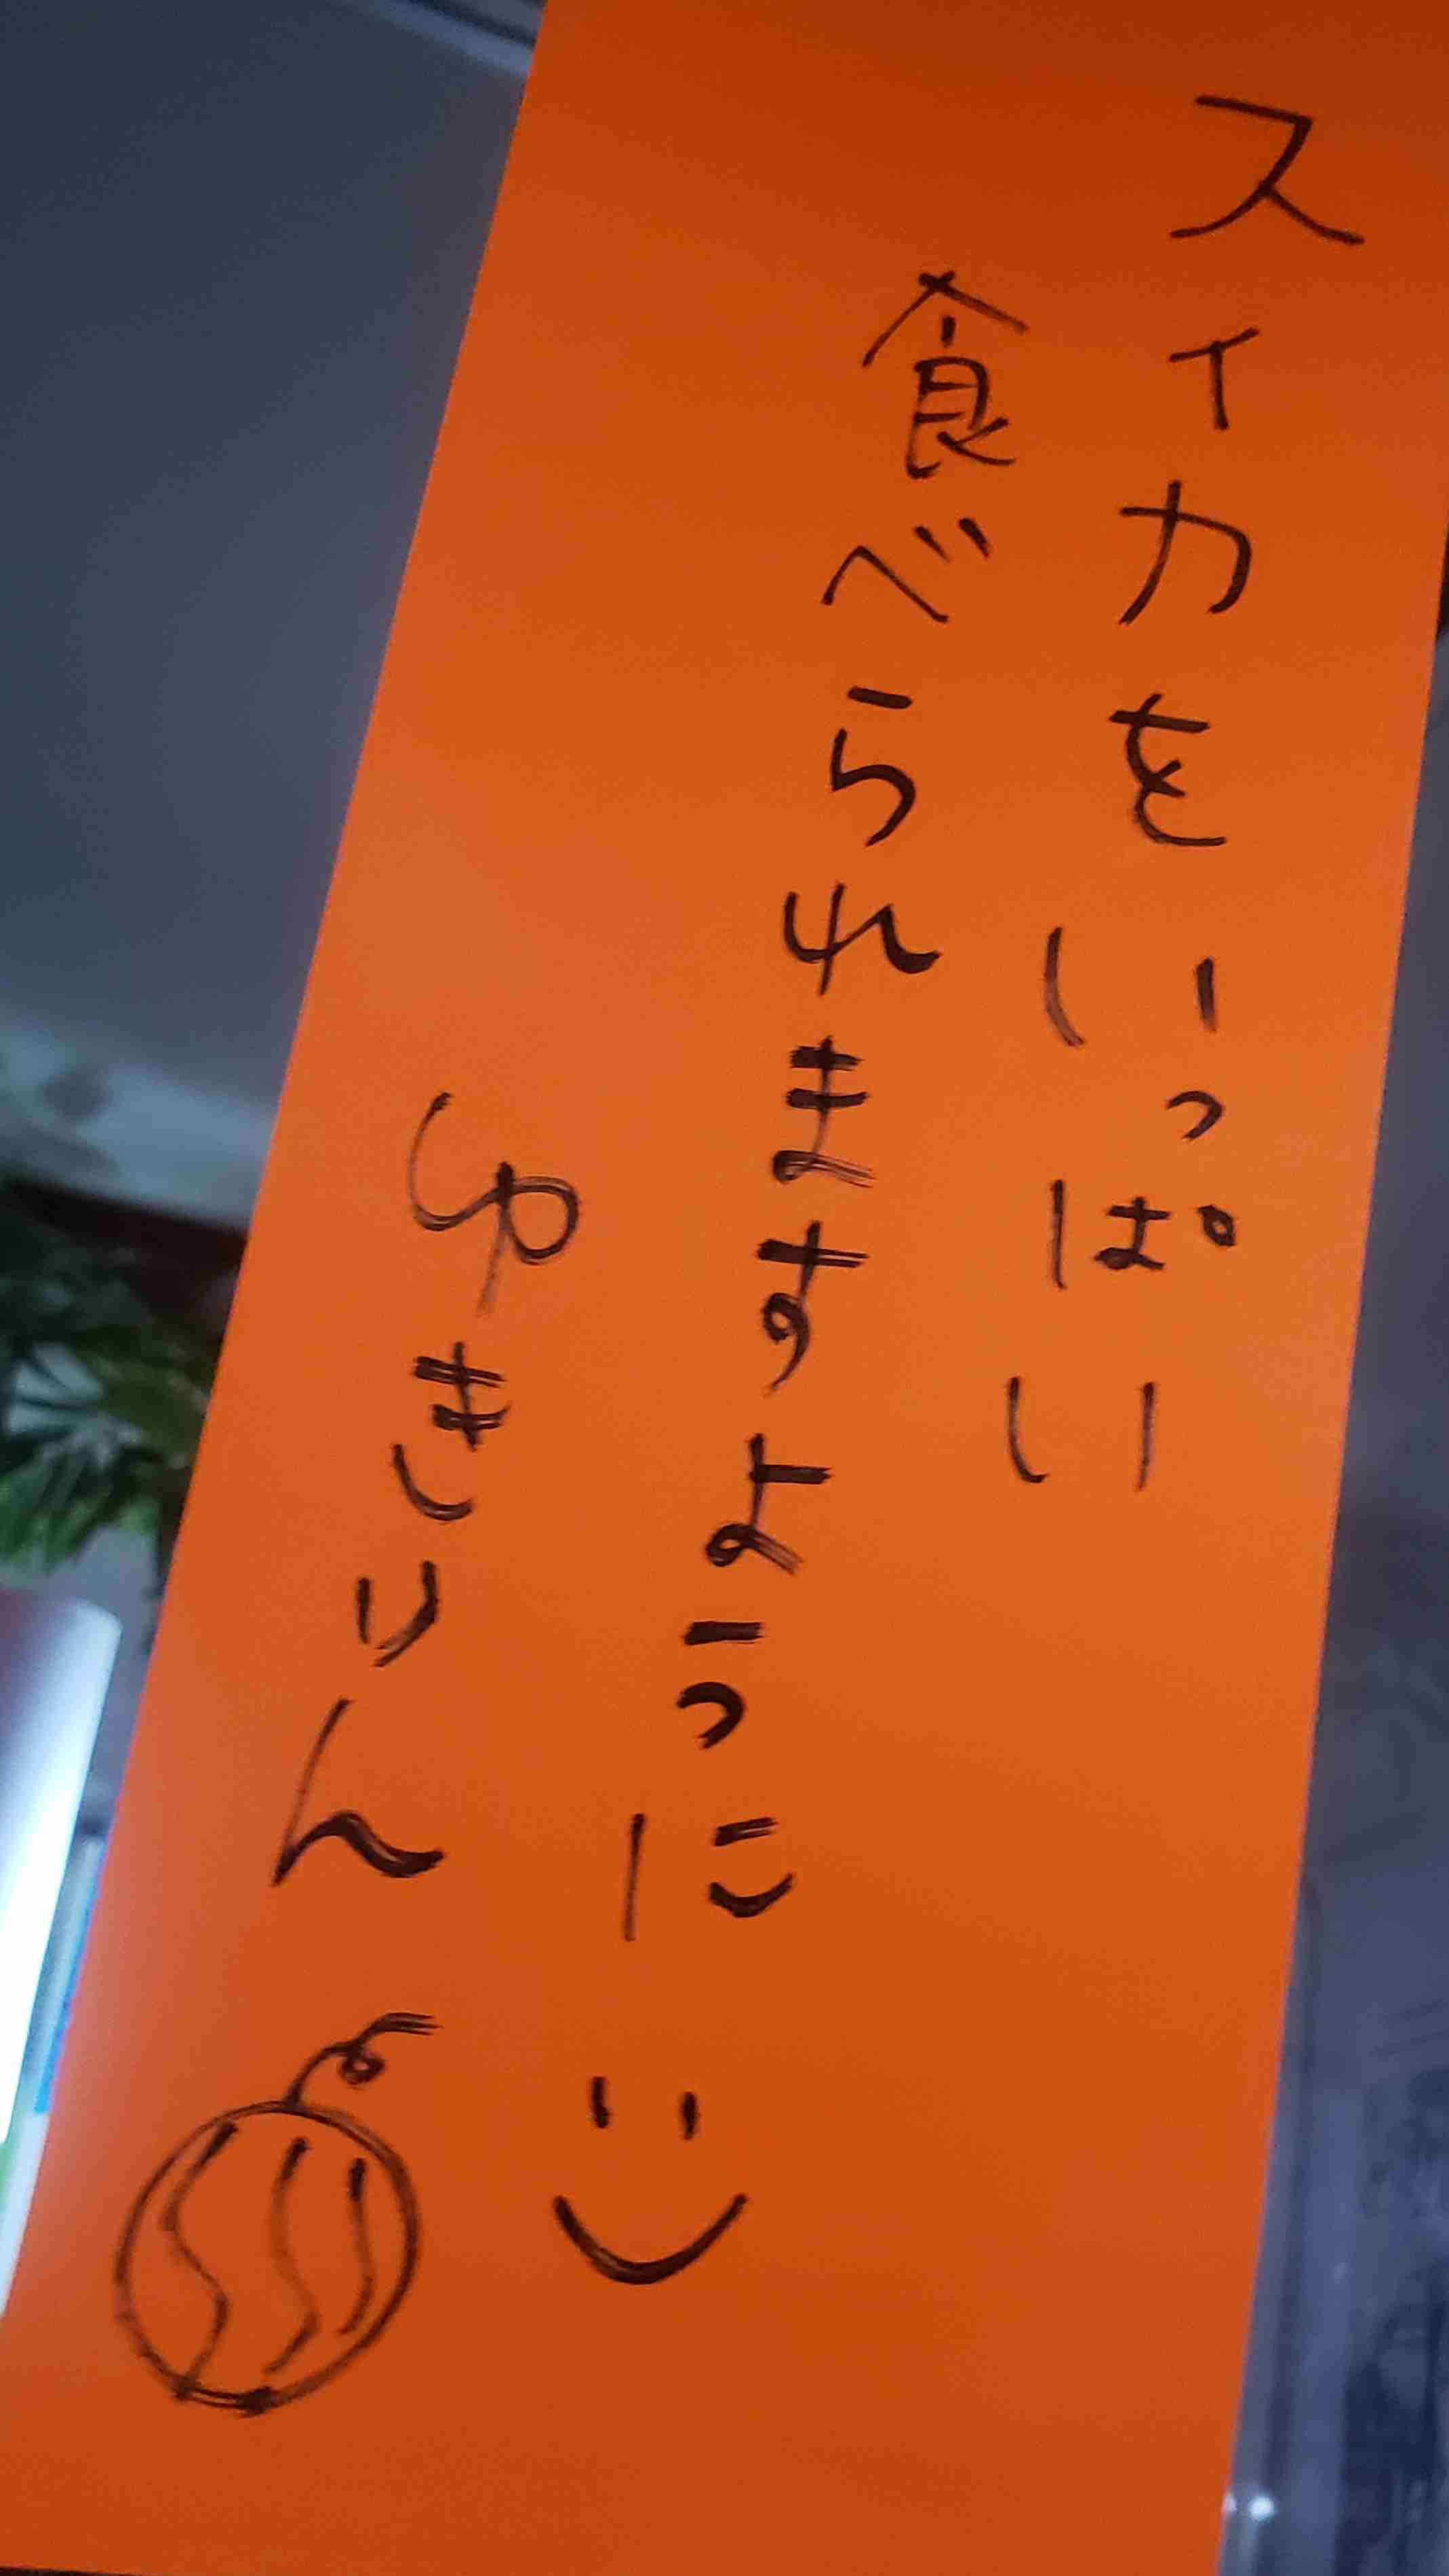 スイカをいっぱい
食べられますように
ゆきこん